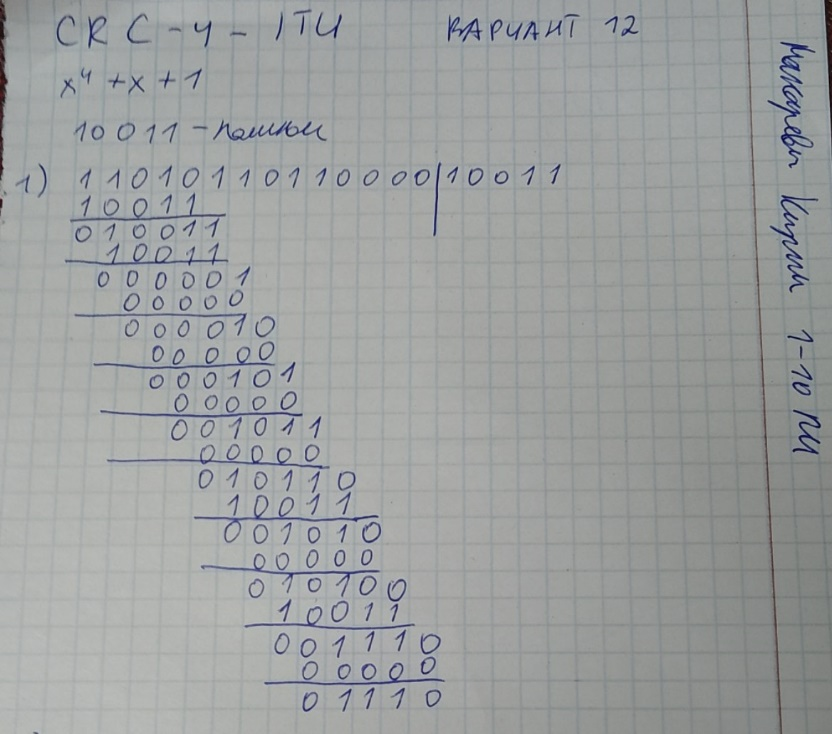 CRC-4-ITU ВАРИАНТ 12
x⁴+x+1
10011 - полином
1) 11010110110000|10011
10011
010011
10011
000001
00000
000010
00000
000101
00000
001011
00000
010110
10011
001010
00000
010100
10011
001110
00000
01110
Макаревич Кирилл 1-10 ПИ